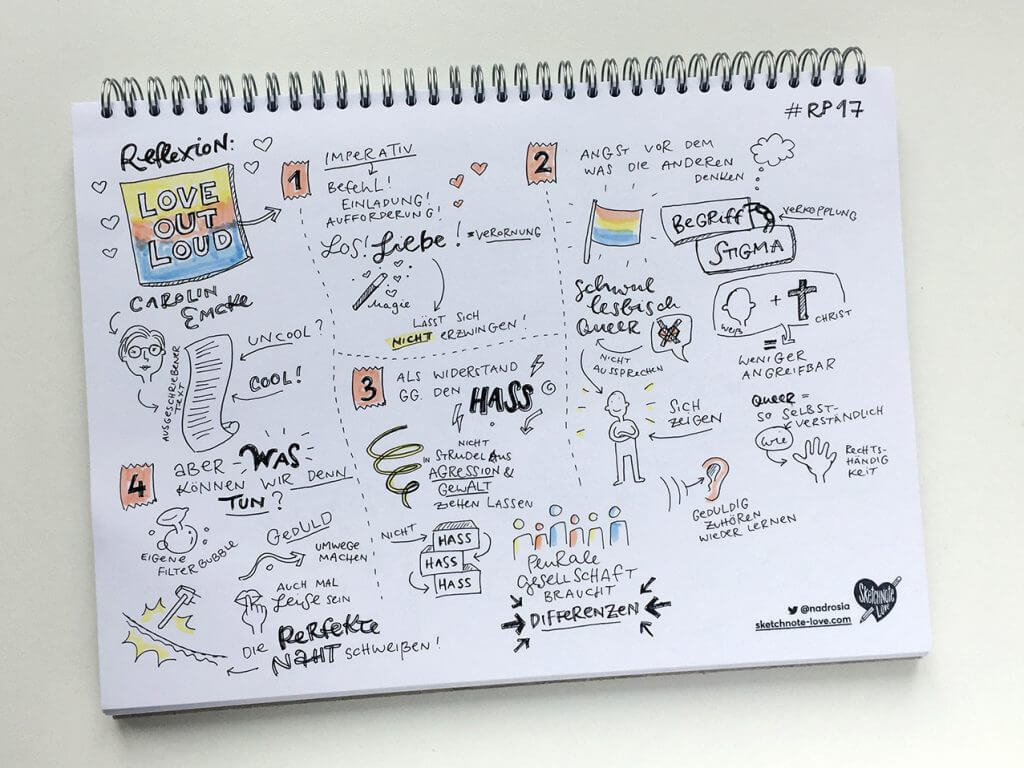 #RP17
Reflexion:
LOVE
OUT
LOUD
CAROLIN
EMCKE
AUSGESCHRIEBENER
TEXT
UNCOOL?
COOL!
1
IMPERATIV
BEFEHL!
EINLADUNG!
AUFFORDERUNG!
LOS! Liebe! *VERORNUNG
MAGIE
LÄSST SICH
NICHT ERZWINGEN!
2
ANGST VOR DEM
WAS DIE ANDEREN
DENKEN
BEGRIFF
VERKOPPLUNG
STIGMA
Schwul
lesbisch
Queer
NICHT
AUSSPRECHEN
weiß
+
CHRIST
=
WENIGER
ANGREIFBAR
SICH
ZEIGEN
Queer =
SO SELBST-
VERSTÄNDLICH
WIE
RECHTS-
HÄNDIG
KEIT
GEDULDIG
ZUHÖREN
WIEDER LERNEN
3
ALS WIDERSTAND
GG. DEN HASS
NICHT
IN STRUDEL AUS
AGRESSION &
GEWALT
ZIEHEN LASSEN
NICHT
HASS
HASS
HASS
PLURALE
GESELLSCHAFT
BRAUCHT
DIFFERENZEN
4
ABER WAS
KÖNNEN WIR DENN
TUN?
EIGENE
FILTERBUBBLE
GEDULD
UMWEGE
MACHEN
AUCH MAL
Leise SEIN
DIE PERFEKTE
NAHT SCHWEIßEN!
Sketchnote
Love
@nadrosia
sketchnote-love.com